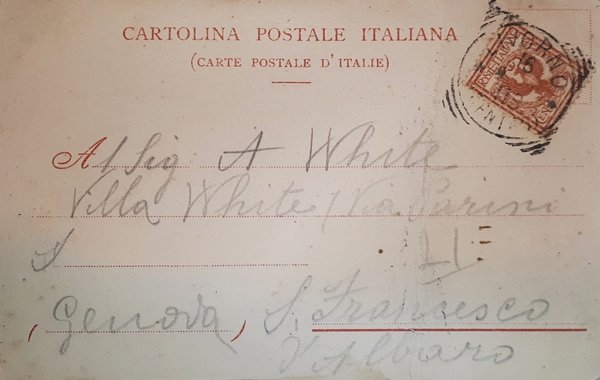 CARTOLINA POSTALE ITALIANA
(CARTE POSTALE D'ITALIE)
POSTE ITALIANE
15
Al Sig A White
Villa White (Via Parini
Genova, S. Francesco
d'Albaro